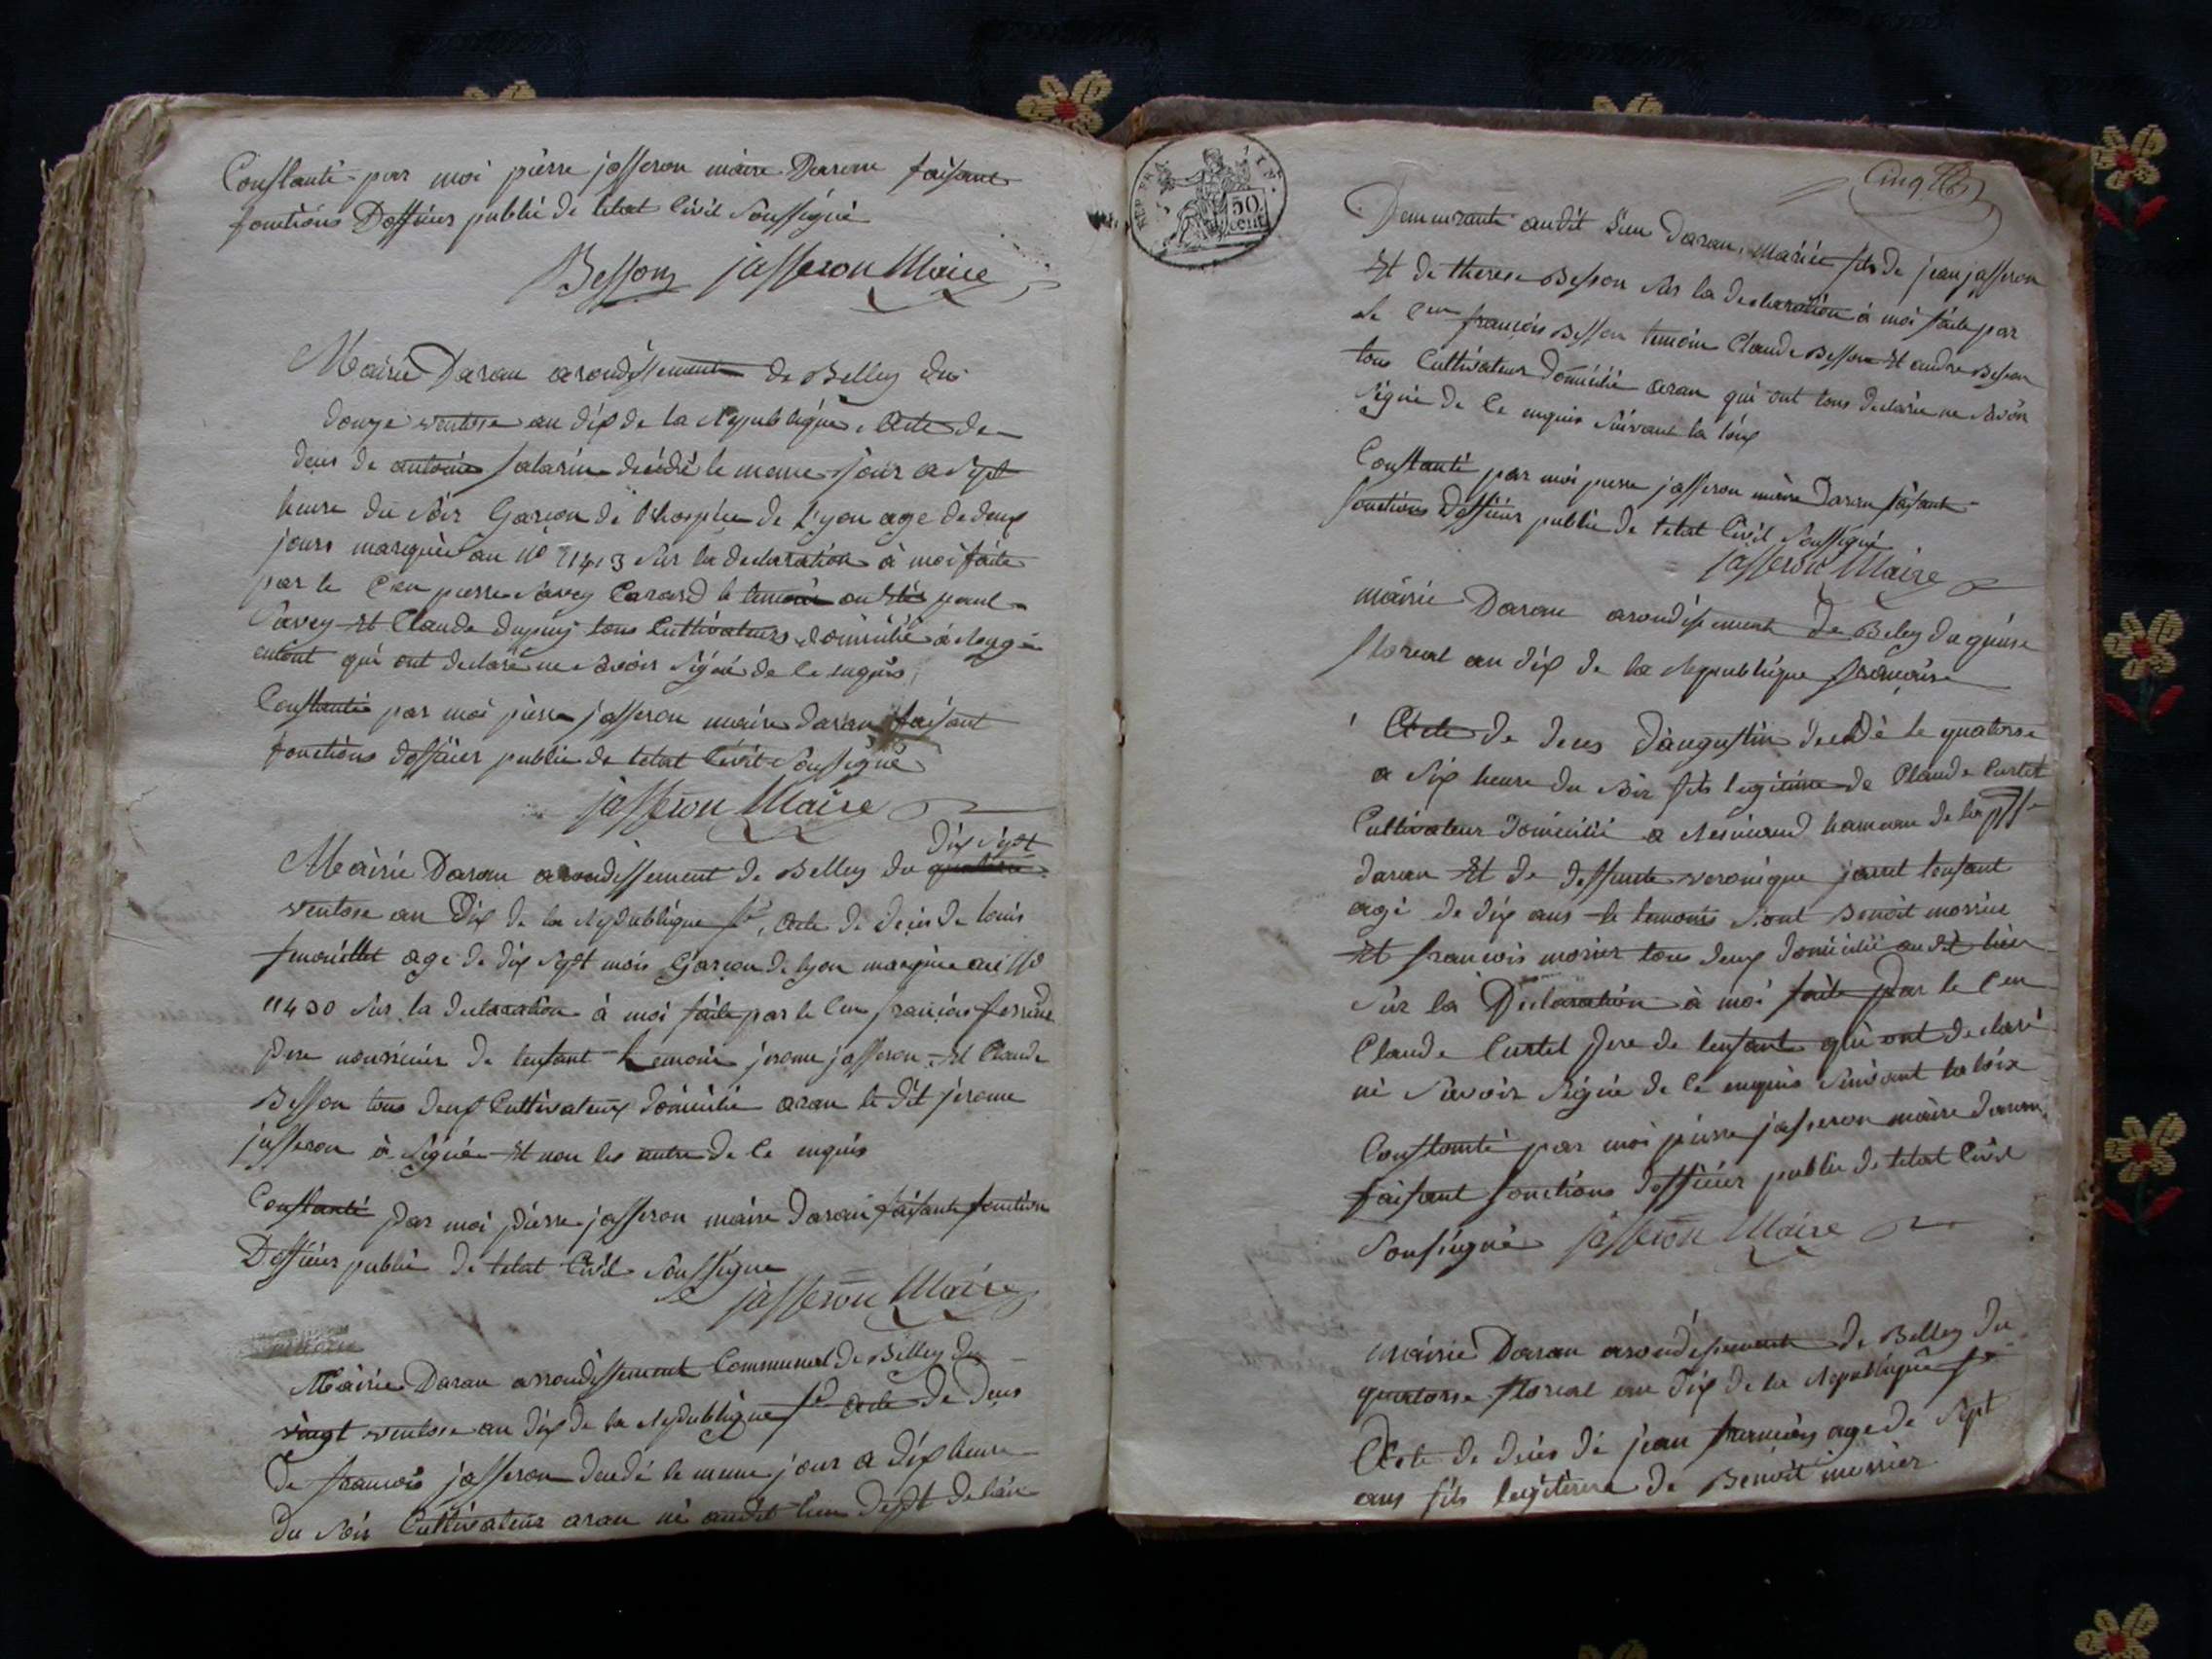 Constanté par moi pierre jasseron maire Daran faisant
fonctions Dofficier public de letat Civil Soussigné
Besson jasseron Maire
Mairie Daran arondissement de Belley du
douze ventose an dix de la Republique Acte de
deces de antoine Salarin décédé le meme jour a Sept
heure du Soir Garçon de lhospice de Lyon age de deux
jours marqué au N° 11413 Sur la declaration à moi faite
par le Cen pierre Savey Carard le temoin on été paul
Savey Et Claude Dupuy tous Cultivateurs domicilié à
qui ont declaré ne Savoir Signé de ce enquis
Constanté par moi pierre jasseron maire daran faisant
fonctions dofficier public de letat Civil Soussigné
jasseron Maire
dix Sept
Mairie Daran arondissement de Belley du
ventose an Dix de la Republique fse, Acte de deces de louis
age de dix Sept mois Garçon de lyon marquée au N°
11430 Sur la declaration à moi faite par le Cen françois
pere nouricier de lenfant temoin jerome jasseron Et Claude
Besson tous deux Cultivateurs domicilié aran le dit jerome
jasseron à Signé Et non les autre de ce enquis
Constanté par moi pierre jasseron maire daran faisant fonction
Dofficier public de letat Civil Soussigné
jasseron Maire
Mairie Daran arrondissement Communal de Belley du
vingt ventose an dix de la Republique fse acte de deces
de francois jasseron decedé le meme jour a dix heure
du Soir Cultivateur aran né audit lieu
Cinq
Demeurante audit Lieu daran, Marié fils de jean jasseron
Et de therese Besson Sur la declaration à moi faite par
le Cen françois Besson temoin Claude Besson Et andre Besson
tous Cultivateur domicilié aran qui ont tous declaré ne Savoir
Signé de Ce enquis Suivant la loix
Constanté par moi pierre jasseron maire Daran faisant
fonctions Dofficier public de letat Civil Soussigné
jasseron Maire
mairie Daran arondisement de Beley du quinse
floreal an dix de la Republique françoise
Acte de deces Daugustin decedé le quatorse
a Six heure du Soir fils legitime de Claude Curtet
Cultivateur domicilié a hameau de la
daran Et de deffunte veronique jauet lenfant
agé de dix ans le temoins Sont Benoit morrier
Et francois morier tous deux domicilié audit lieu
Sur la Declaration à moi faite par le Cen
Claude Curtet pere de lenfant qui ont declaré
ne Savoir Signé de Ce enquis Suivant la loix
Constanté par moi pierre jasseron maire daran
faisant fonctions dofficier public de letat Civil
Sousigné jasseron Maire
mairie Daran arondisement de Belley du
quatorse floreal an dix de la Republique fse
Acte de deces de jean françois age de Sept
ans fils legitime de Benoit morrier
REP. FRA.
50.
cent.